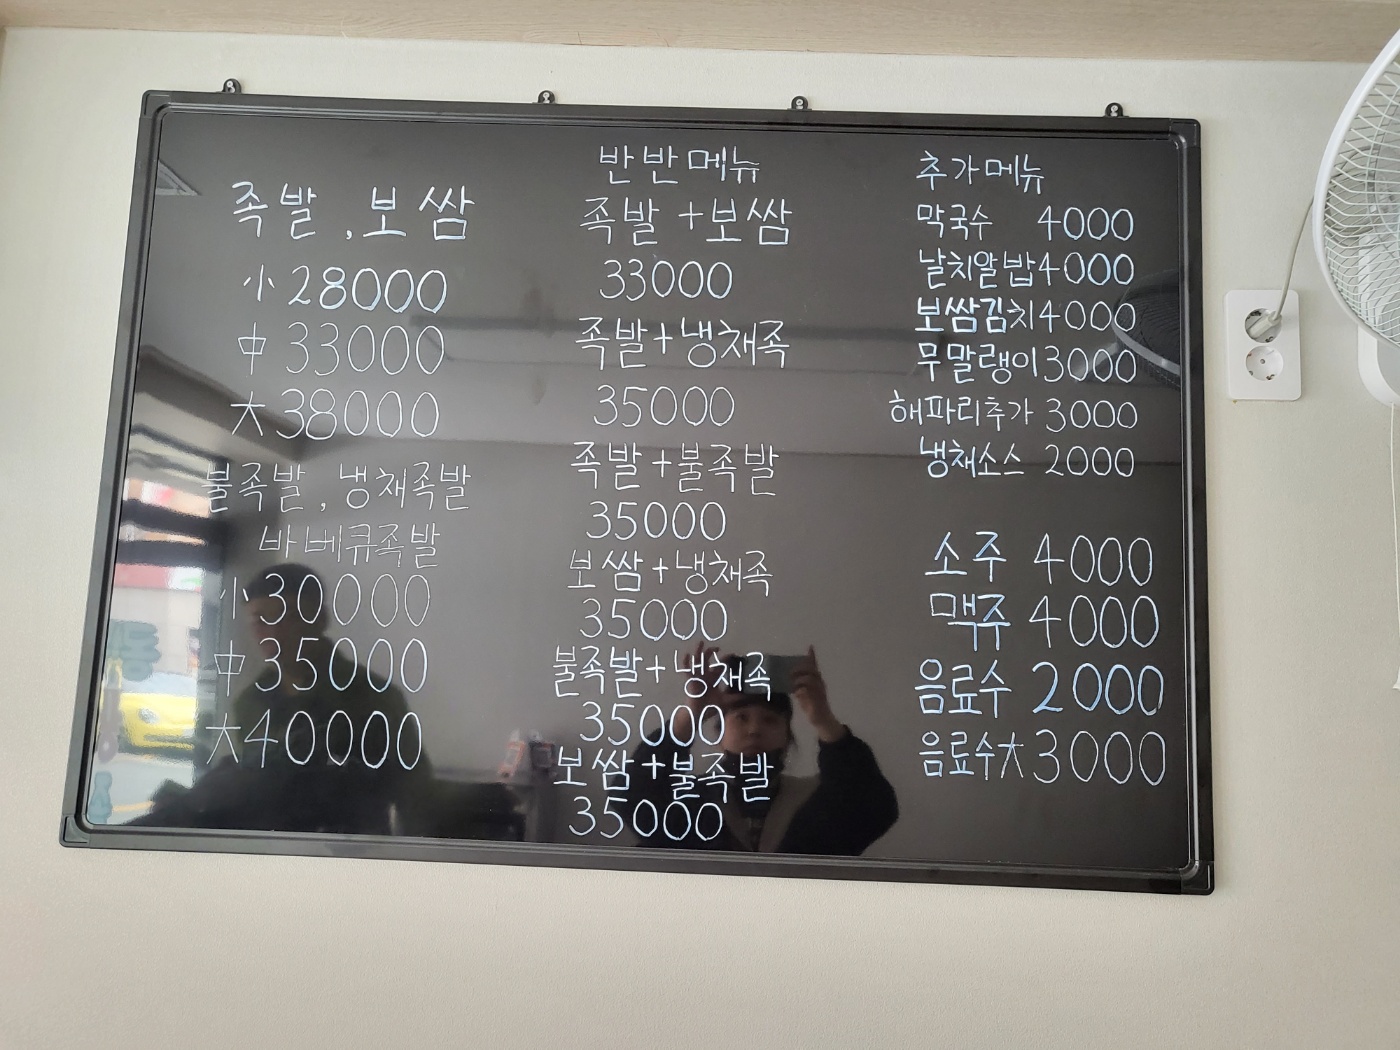 족발 , 보쌈
小 28000
中 33000
大 38000
불족발 , 냉채족발
바베큐족발
小 30000
中 35000
大 40000
반반메뉴
족발 + 보쌈
33000
족발 + 냉채족
35000
족발 + 불족발
35000
보쌈 + 냉채족
35000
불족발 + 냉채족
35000
보쌈 + 불족발
35000
추가메뉴
막국수 4000
날치알밥 4000
보쌈김치 4000
무말랭이 3000
해파리추가 3000
냉채소스 2000
소주 4000
맥주 4000
음료수 2000
음료수大 3000